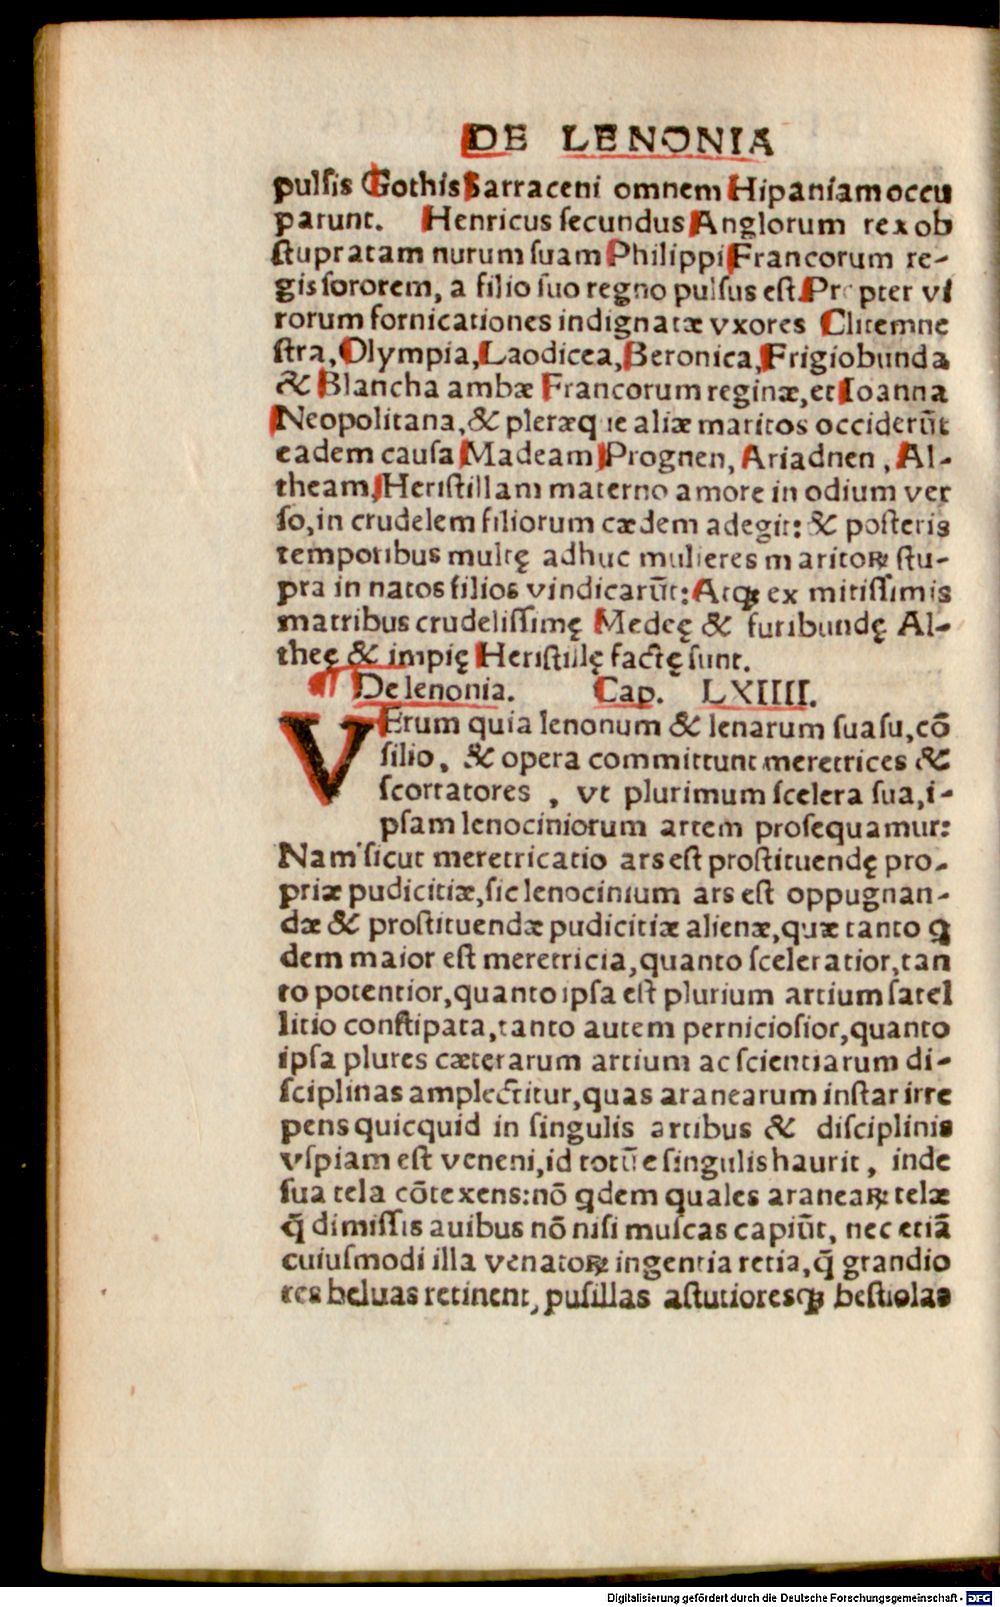 DE LENONIA
pulsis Gothis Sarraceni omnem Hipaniam occu
parunt. Henricus secundus Anglorum rex ob
stupratam nurum suam Philippi Francorum re-
gis sororem, a filio suo regno pulsus est. Propter vi
rorum fornicationes indignatæ vxores Clitemne
stra, Olympia, Laodicea, Beronica, Frigiobunda
& Blancha ambæ Francorum reginæ, et Ioanna
Neopolitana, & pleræque aliæ maritos occiderūt
eadem causa Madeam Prognen, Ariadnen, Al-
theam, Heristillam materno amore in odium ver
so, in crudelem filiorum cædem adegit: & posteris
temporibus multę adhuc mulieres maritoꝝ stu-
pra in natos filios vindicarūt: Atqꝫ ex mitissimis
matribus crudelissimę Medeę & furibundę Al-
theę & impię Heristillę factę sunt.
¶ De lenonia. Cap. LXIIII.
VErum quia lenonum & lenarum suasu, cō
silio, & opera committunt meretrices &
scortatores, vt plurimum scelera sua, i-
psam lenociniorum artem prosequamur:
Nam sicut meretricatio ars est prostituendę pro-
priæ pudicitiæ, sic lenocinium ars est oppugnan-
dæ & prostituendæ pudicitiæ alienæ, quæ tanto ꝗ
dem maior est meretricia, quanto sceleratior, tan
to potentior, quanto ipsa est plurium artium satel
litio constipata, tanto autem perniciosior, quanto
ipsa plures cæterarum artium ac scientiarum di-
sciplinas amplectitur, quas aranearum instar irre
pens quicquid in singulis artibus & disciplinis
vspiam est veneni, id totū e singulis haurit, inde
sua tela cōtexens: nō ꝗdem quales araneaꝝ telæ
q̄ dimissis auibus nō nisi muscas capiūt, nec etiā
cuiusmodi illa venatoꝝ ingentia retia, q̄ grandio
res beluas retinent, pusillas astutioresqꝫ bestiolas
Digitalisierung gefördert durch die Deutsche Forschungsgemeinschaft - DFG